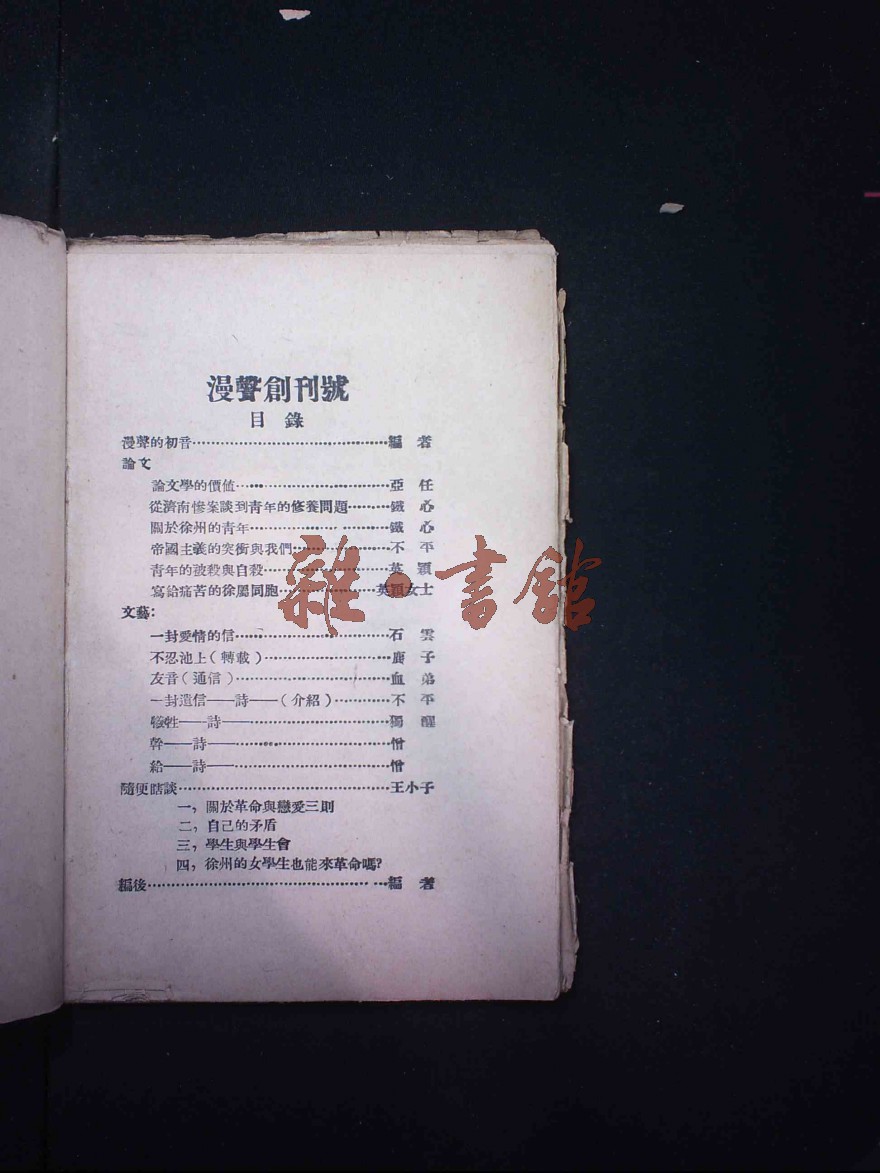 漫聲創刊號
目錄
漫聲的初音……編者
論文
論文學的價値……亞任
從濟南慘案談到青年的修養問題……鐵心
關於徐州的青年……鐵心
帝國主義的突衝與我們……不平
青年的被殺與自殺……英穎
寫給痛苦的徐屬同胞……英穎女士
文藝：
一封愛情的信……石雲
不忍池上（轉載）……庚子
友音（通信）……血弟
一封遺信——詩——（介紹）……不平
犧牲——詩——……獨醒
幹——詩——……惛
給——詩——……惛
隨便瞎談……王小子
一，關於革命與戀愛三則
二，自己的矛盾
三，學生與學生會
四，徐州的女學生也能來革命嗎？
編後……編者
雜·書館